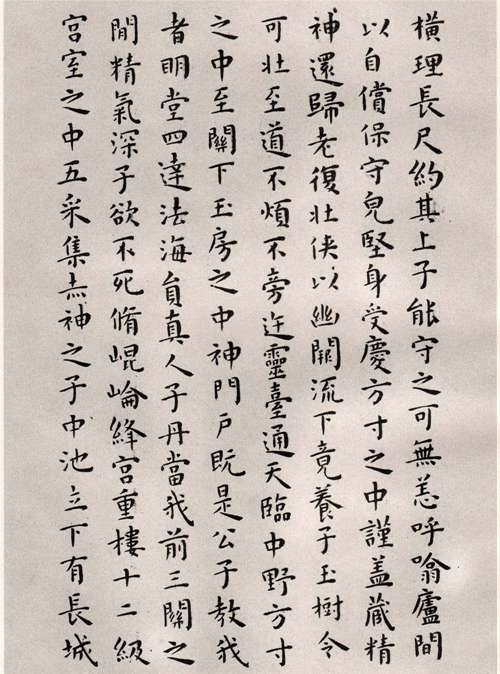 橫理長尺約其上子能守之可無恙呼噏廬間
以自償保守皃堅身受慶方寸之中謹盖藏精
神還歸老復壯俠以幽闕流下竟養子玉樹令
可壯至道不煩不旁迕靈臺通天臨中野方寸
之中至關下玉房之中神門戶既是公子教我
者明堂四達法海負真人子丹當我前三關之
間精氣深子欲不死脩崐崘絳宮重樓十二級
宮室之中五采集赤神之子中池立下有長城